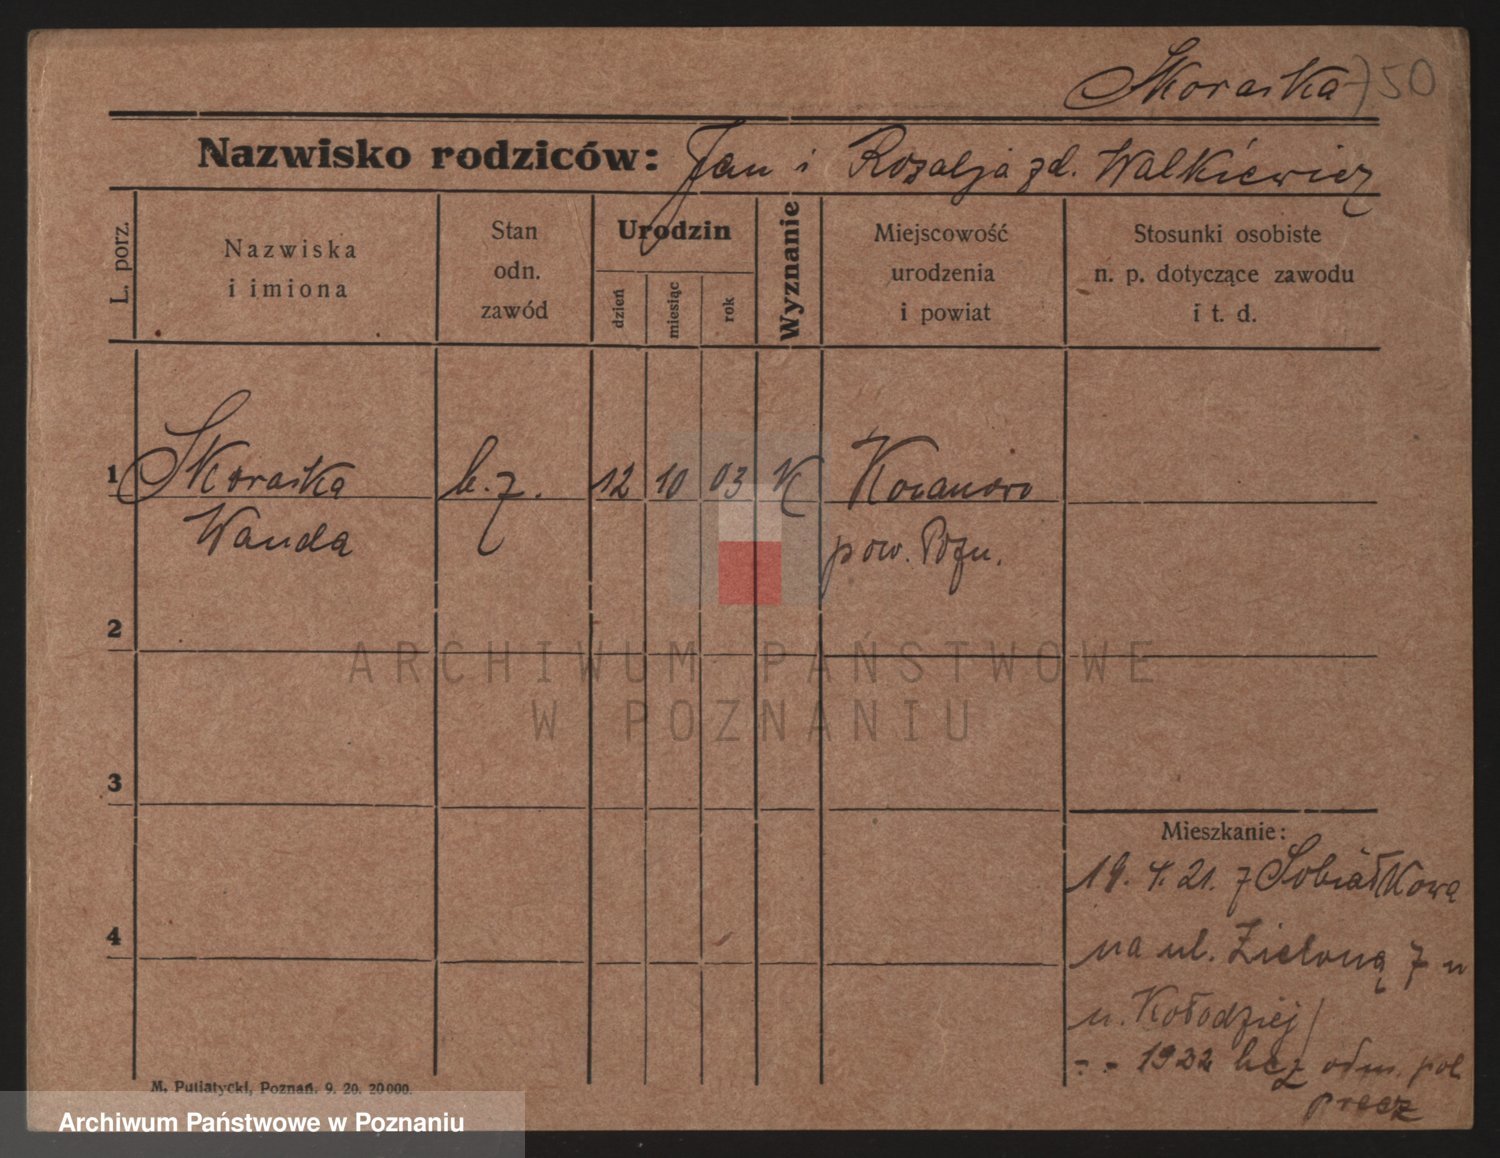 Skoraska 750
Nazwisko rodziców: Jan i Rozalja zd. Walkiewicz
L. porz.
Nazwiska
i imiona
Stan
odn.
zawód
Urodzin
dzień
miesiąc
rok
Wyznanie
Miejscowość
urodzenia
i powiat
Stosunki osobiste
n. p. dotyczące zawodu
i t. d.
1 Skoraska b. z. 12 10 03 K
Wanda pow. Pozn.
2
3
4
Mieszkanie:
19. 4. 21. z Sobiałkowa
na ul. Zieloną 7
u. Kołodziej
- - 1922 bez odm. pol
precz
M. Putiatycki, Poznań. 9. 20. 20000.
ARCHIWUM PAŃSTWOWE
W POZNANIU
Archiwum Państwowe w Poznaniu